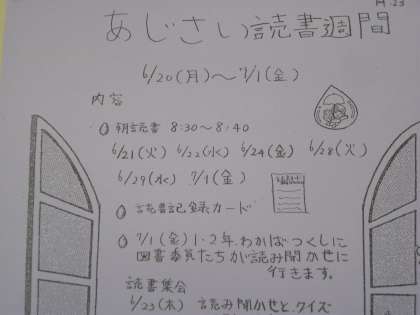 H.23
あじさい読書週間
6/20(月)～7/1(金)
内容
朝読書 8:30～8:40
6/21(火) 6/22(水) 6/24(金) 6/28(火)
6/29(水) 7/1(金)
読書記録カード
7/1(金)1・2年、わかば、つくしに
図書委員たちが読み聞かせに
行きます。
読書集会
6/23(木) 読み聞かせと、クイズ